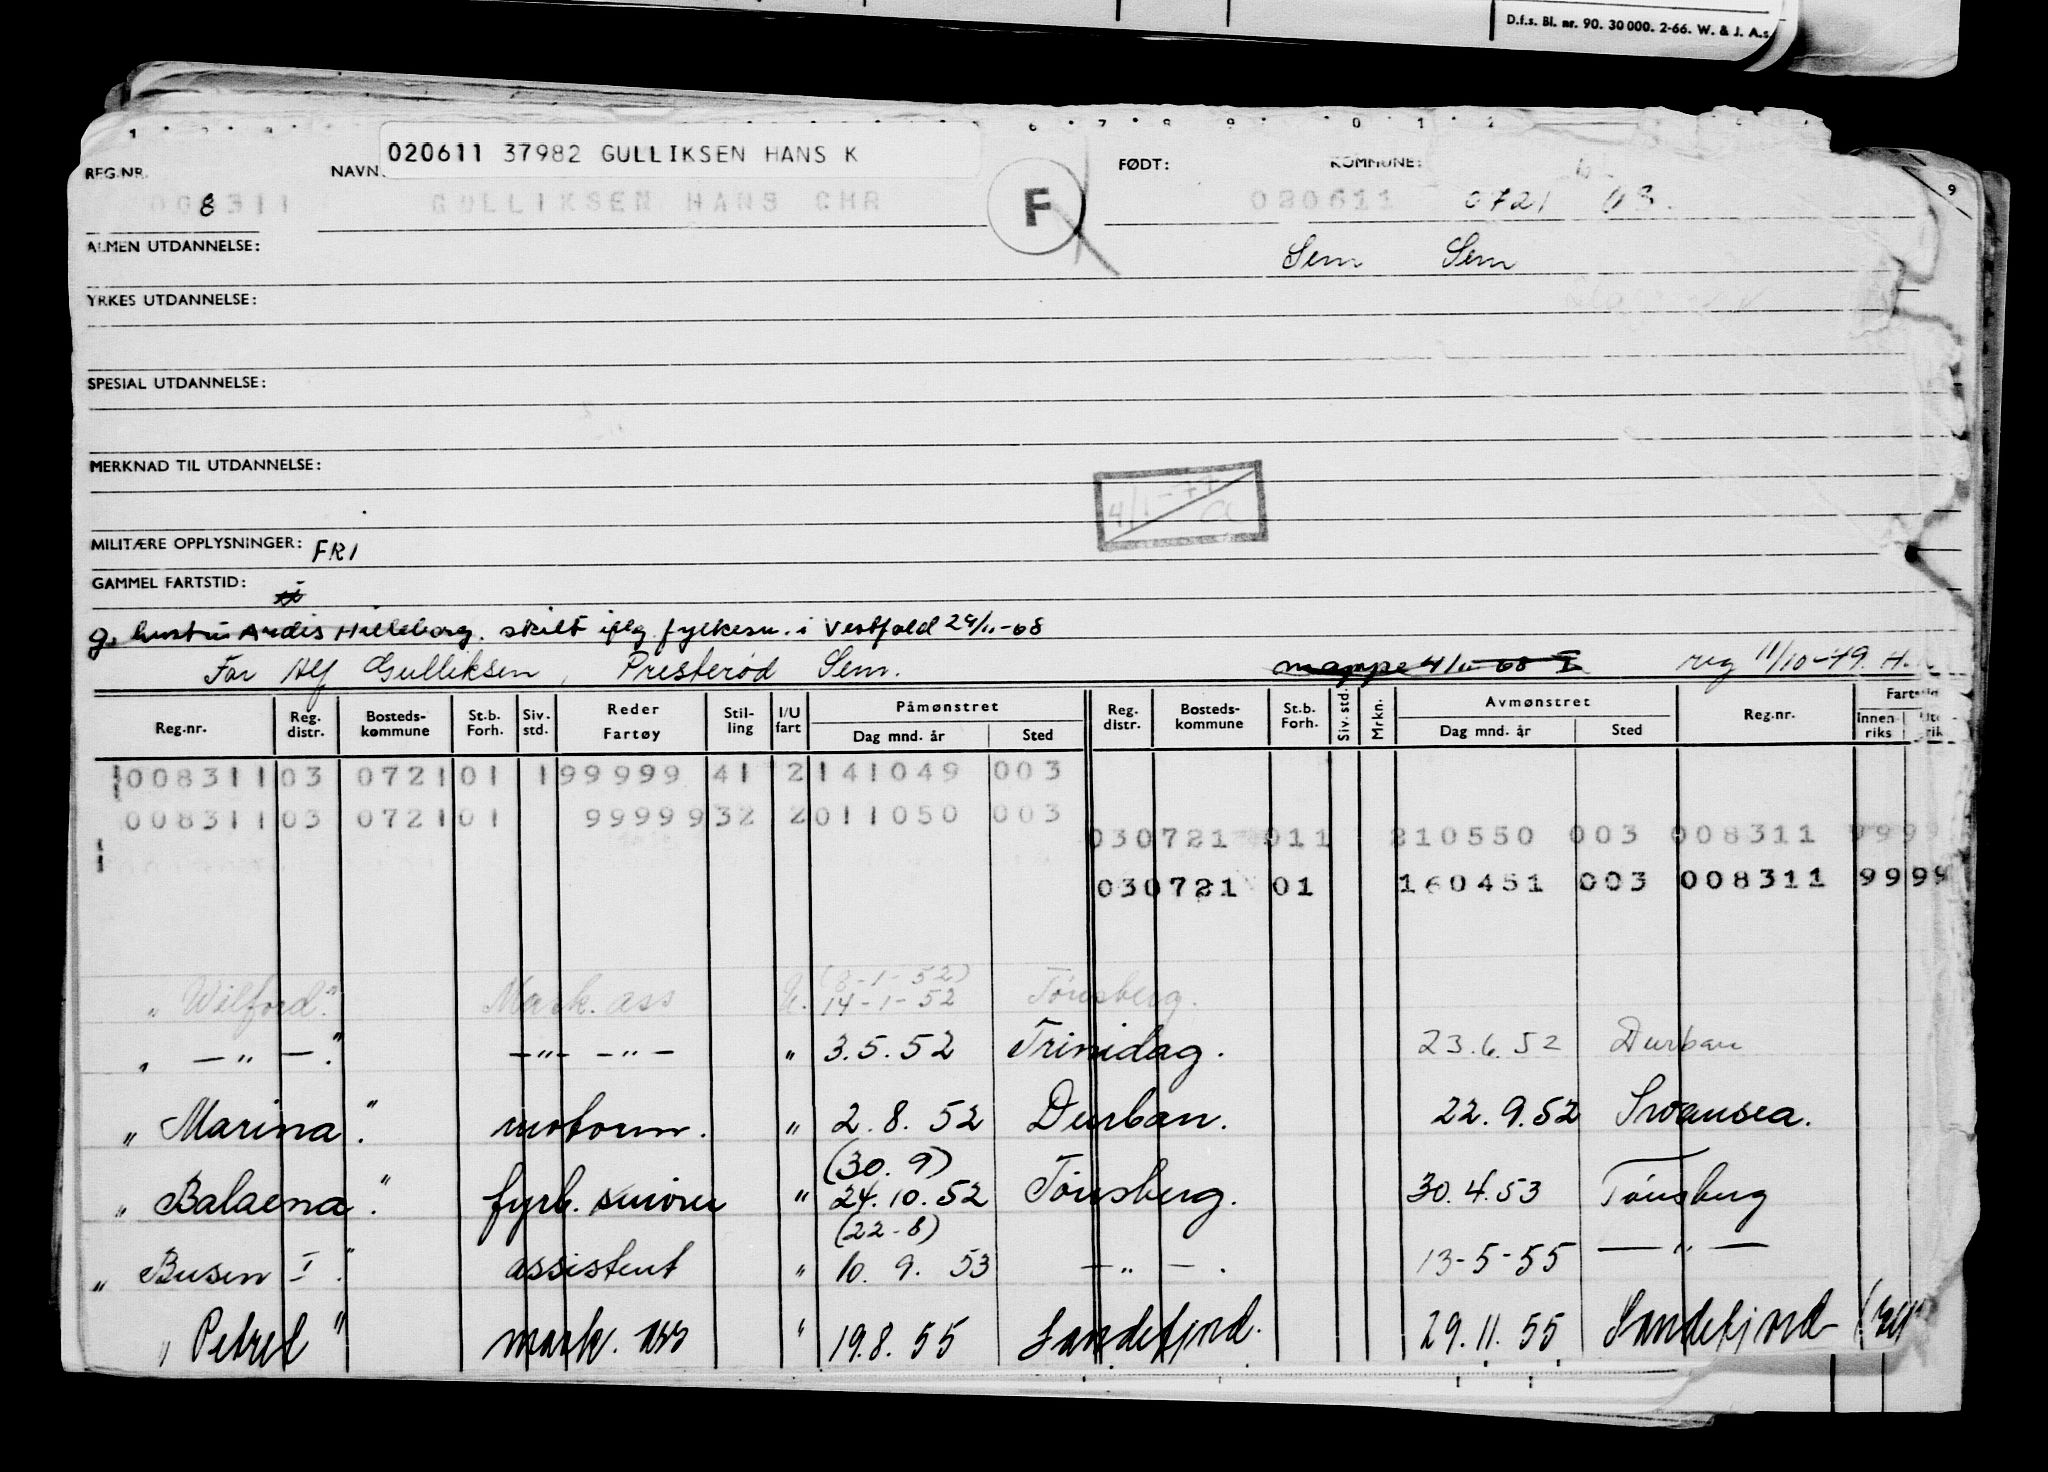 D.f.s. Bl. nr. 90. 30 000. 2-66. W. & J. A.s.
REG.NR. NAVN: 020611 37982 GULLIKSEN HANS K FØDT: KOMMUNE:
8311 GULLIKSEN HANS CHR F 020611 0721 03.
ALMEN UTDANNELSE: Sem Sem
YRKES UTDANNELSE:
SPESIAL UTDANNELSE:
MERKNAD TIL UTDANNELSE:
4/1-77
MILITÆRE OPPLYSNINGER: FRI
GAMMEL FARTSTID:
g. hustru Ardis Hilleborg. skilt iflg. fylkesm. i Vestfold 29/11-68
Far Alf Gulliksen, Presterød Sem. mappe 4/11-68 reg 11/10-49. H.
Reg.nr. Reg. distr. Bosteds-kommune St.b. Forh. Siv. std. Reder Fartøy Stil-ling I/U fart Påmønstret Dag mnd. år Sted Reg. distr. Bosteds-kommune St.b. Forh. Siv. std. Mrkn. Avmønstret Dag mnd. år Sted Reg.nr. Fartstid Innen-riks
008311 03 0721 01 1 99999 41 2 141049 003
008311 03 0721 01 99999 32 2 011050 003
030721 011 210550 003 008311 9999
030721 01 160451 003 008311 9999
(8-1-52)
"Wilford" Mask. ass U. 14-1-52 Tønsberg.
" — " — " — " — — " — " 3.5.52 Trinidag. 23.6.52 Durban
"Marina" motorm. " 2.8.52 Durban. 22.9.52 Swansea.
(30.9)
"Balaena" fyrb. smører " 24.10.52 Tønsberg. 30.4.53 Tønsberg
(22-8)
"Busen I" assistent " 10.9.53 — " — . 13-5-55 — " —
"Petrel" mask. ass " 19.8.55 Sandefjord. 29.11.55 Sandefjord